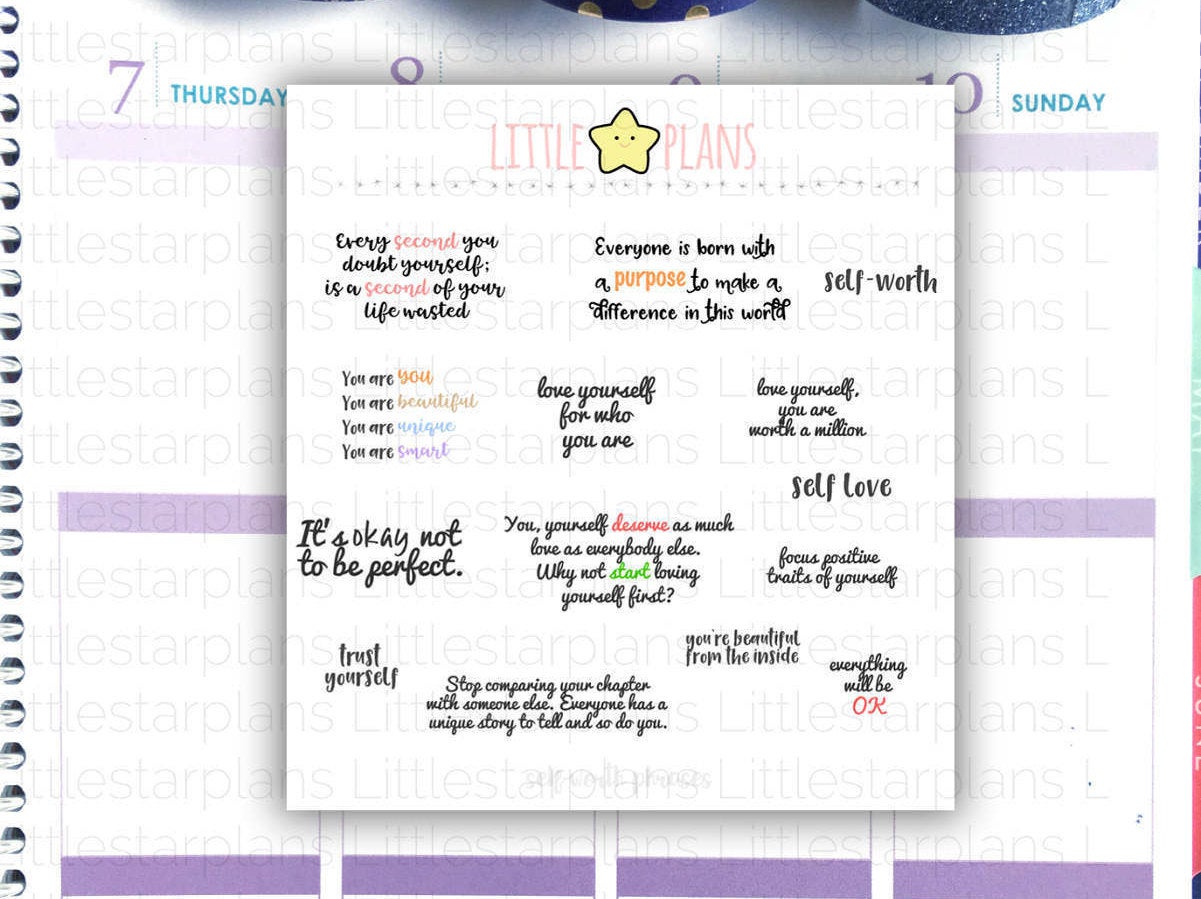 7 THURSDAY
8
9
10 SUNDAY
LITTLE PLANS
Every second you
doubt yourself;
is a second of your
life wasted
Everyone is born with
a purpose to make a
difference in this world
self-worth
You are you
You are beautiful
You are unique
You are smart
love yourself
for who
you are
love yourself,
you are
worth a million
self love
It's okay not
to be perfect.
You, yourself deserve as much
love as everybody else.
Why not start loving
yourself first?
focus positive
traits of yourself
trust
yourself
Stop comparing your chapter
with someone else. Everyone has a
unique story to tell and so do you.
you're beautiful
from the inside
everything
will be
OK
self-worth phrases
Littlestarplans